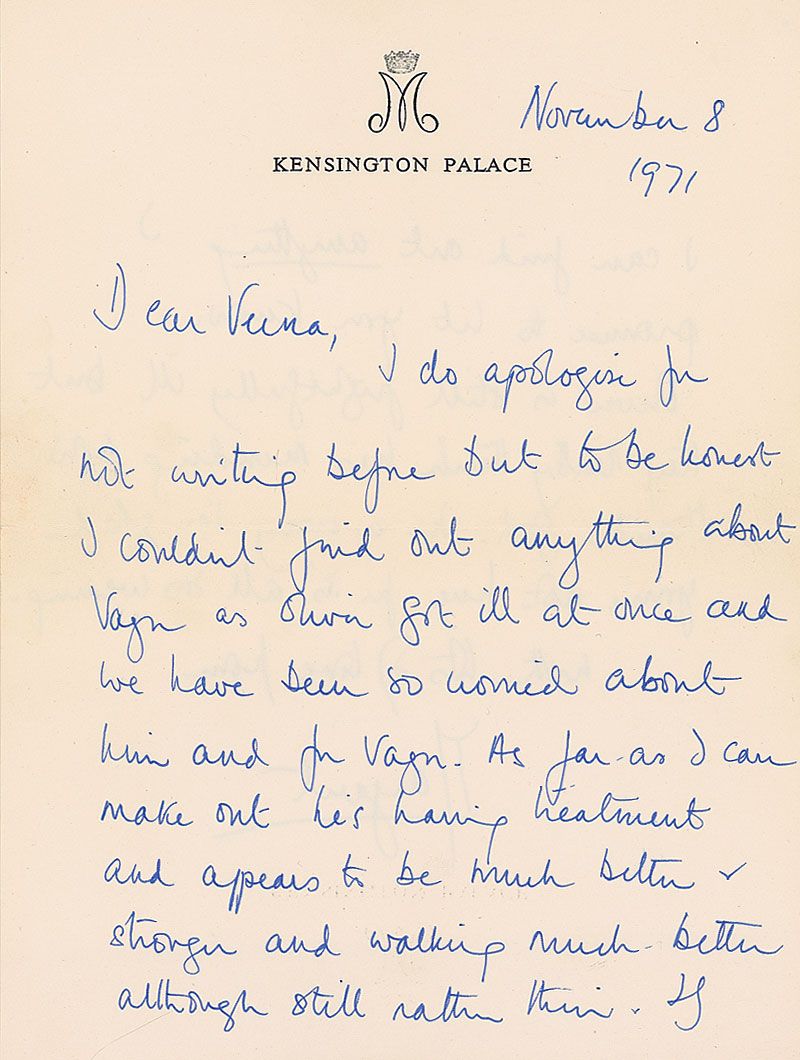 M
November 8
KENSINGTON PALACE
1971
Dear Verna,
I do apologise for
not writing before but to be honest
I couldn't find out anything about
Vagn as Olivier got ill at once and
we have been so worried about
him and for Vagn. As far as I can
make out he's having treatment
and appears to be much better &
stronger and walking much better
although still rather thin. If